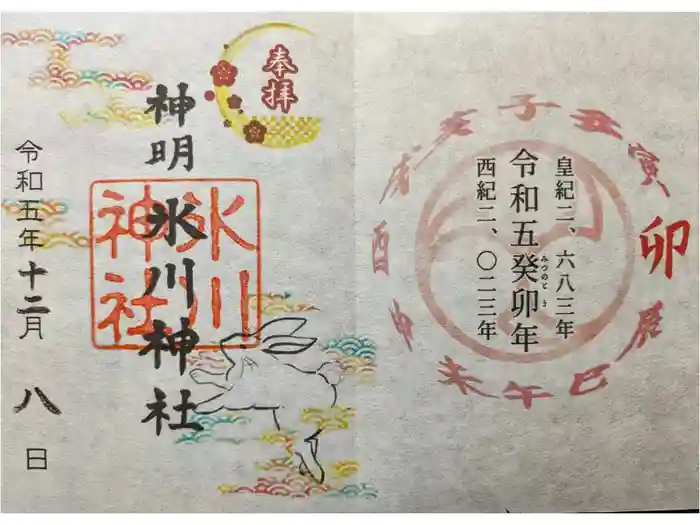 皇紀二、六八三年
令和五癸卯年
みつのとう
西紀二、〇二三年
子
丑
寅
卯
辰
巳
午
未
申
酉
戌
亥
奉拝
神明
氷川神社
氷川
神社
令和五年十二月八日